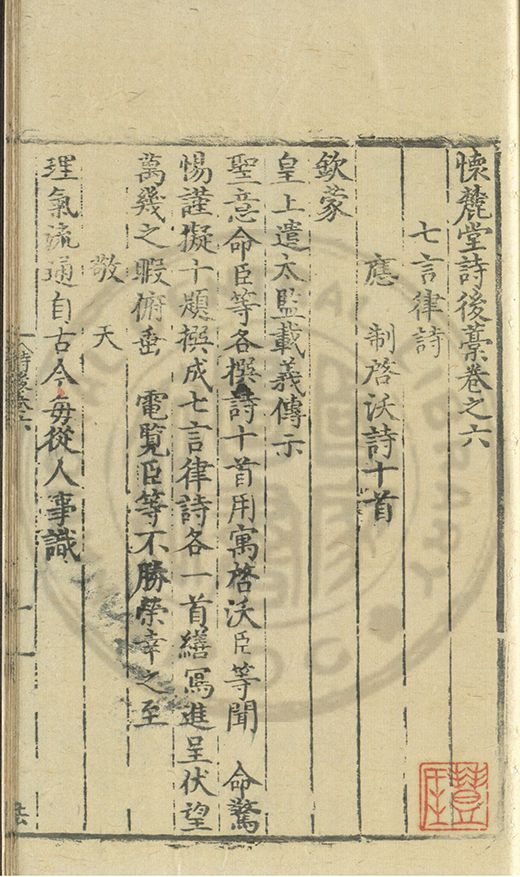 懷麓堂詩後藁卷之六
七言律詩
應 制啓沃詩十首
欽蒙
皇上遣太監載義傳示
聖意命臣等各撰詩十首用寓啓沃臣等聞 命驚
惕謹擬十題撰成七言律詩各一首繕寫進呈伏望
萬幾之暇俯垂 電覽臣等不勝榮幸之至
敬 天
理氣流通自古今毎從人事識